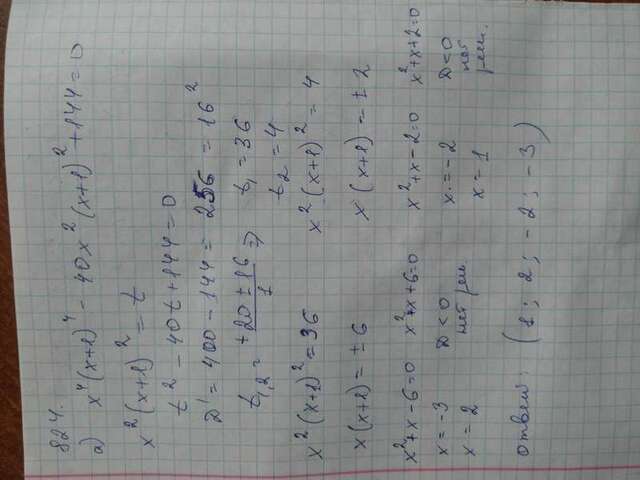 824.
а) x⁴(x+1)⁴ - 40x²(x+1)² + 144 = 0
x²(x+1)² = t
t² - 40t + 144 = 0
D' = 400 - 144 = 256 = 16²
t₁,₂ = +20 ± 16 / 1 ⇒ t₁ = 36
t₂ = 4
x²(x+1)² = 36 x²(x+1)² = 4
x(x+1) = ± 6 x(x+1) = ± 2
x² + x - 6 = 0 x² + x + 6 = 0 x² + x - 2 = 0 x² + x + 2 = 0
x = -3 D < 0 x = -2 D < 0
x = 2 нет реш. x = 1 нет реш.
ответ: (1; 2; -2; -3)